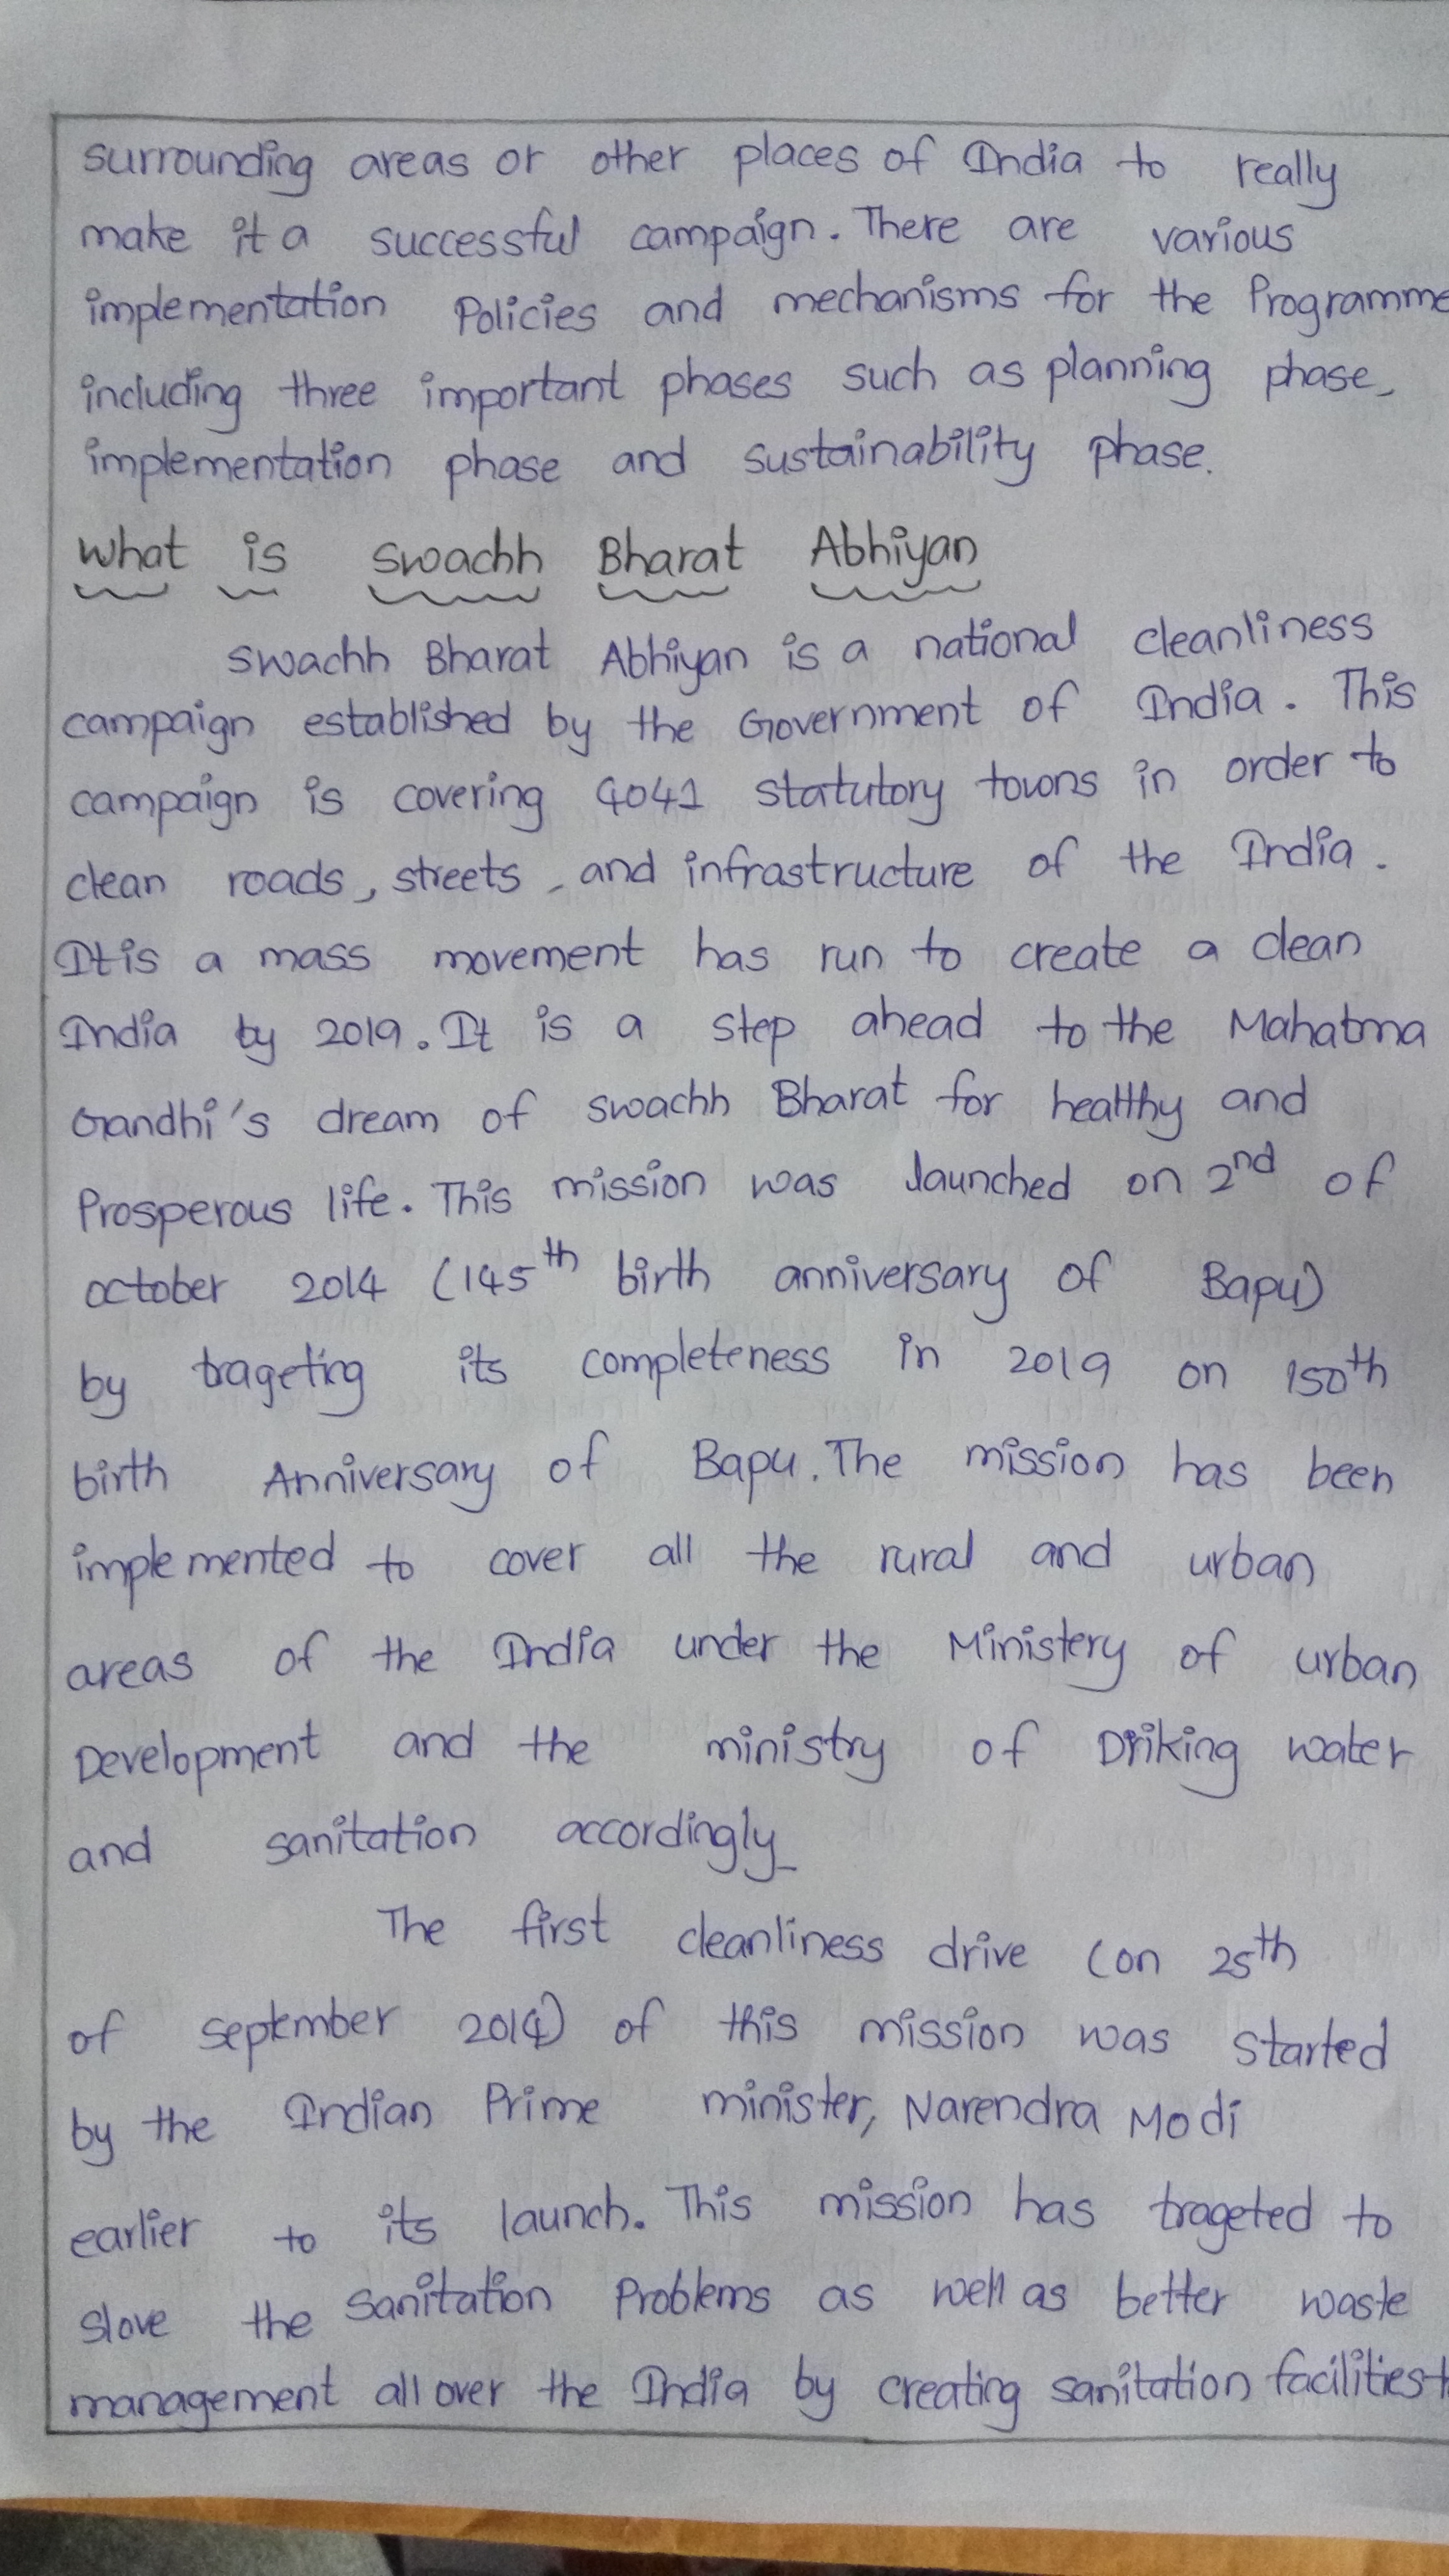 surrounding areas or other places of India to really
make it a successful campaign. There are various
implementation Policies and mechanisms for the Programme
including three important phases such as planning phase,
implementation phase and sustainability phase.
What is swachh Bharat Abhiyan
swachh Bharat Abhiyan is a national cleanliness
campaign established by the Government of India. This
campaign is covering 4041 statutory towns in order to
clean roads, streets, and infrastructure of the India.
It is a mass movement has run to create a clean
India by 2019. It is a step ahead to the Mahatma
Gandhi's dream of swachh Bharat for healthy and
Prosperous life. This mission was launched on 2nd of
october 2014 (145th birth anniversary of Bapu)
by trageting its completeness in 2019 on 150th
birth Anniversary of Bapu. The mission has been
implemented to cover all the rural and urban
areas of the India under the Ministery of urban
Development and the ministry of Driking water
and sanitation accordingly
The first cleanliness drive (on 25th
of september 2014) of this mission was started
by the Indian Prime minister, Narendra Modi
earlier to its launch. This mission has trageted to
slove the sanitation Problems as well as better waste
management all over the India by creating sanitation facilities